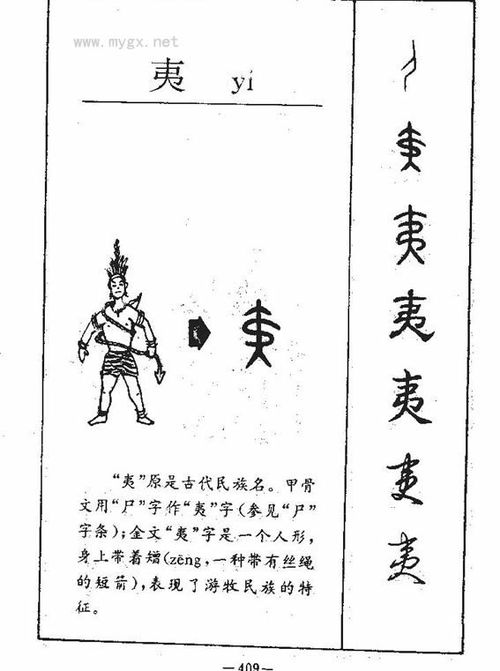 www.mygx.net
夷 yí
“夷”原是古代民族名。甲骨
文用“尸”字作“夷”字(参见“尸”
字条);金文“夷”字是一个人形,
身上带着矰(zēng,一种带有丝绳
的短箭),表现了游牧民族的特
征。
夷
夷
夷
夷
夷
夷
夷
—409—